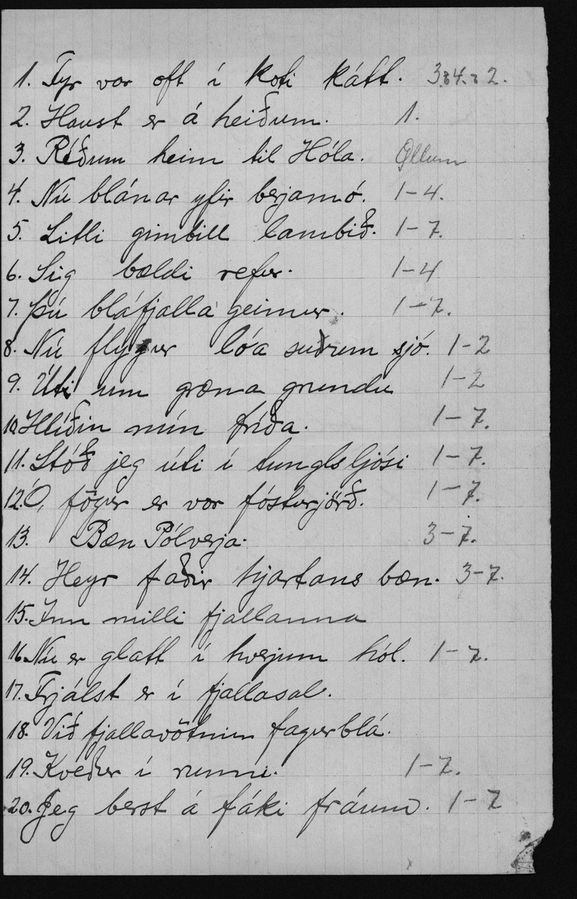 1. Fyr var oft í koti kátt. 3 & 4. & 2.
2. Haust er á heiðum. 1.
3. Ríðum heim til Hóla. Öllum
4. Nú blánar yfir berjamó. 1-4.
5. Litli gimbill lambið. 1-7.
6. Sig bældi refur. 1-4
7. Þú bláfjalla geimur. 1-7.
8. Nú flýgur lóa suðrum sjó. 1-2
9. Úti um græna grundu 1-2
10. Hlíðin mín fríða. 1-7.
11. Stóð jeg úti í tungls ljósi 1-7.
12. Ó, fögur er vor fósturjörð. 1-7.
13. Bæn Pólverja. 3-7.
14. Heyr faðir hjartans bæn. 3-7.
15. Inn milli fjallanna
16. Nú er glatt í hverjum hól. 1-7.
17. Frjálst er í fjallasal.
18. Við fjallavötnin fagurblá.
19. Kveður í runni. 1-7.
20. Jeg berst á fáki fráum. 1-7